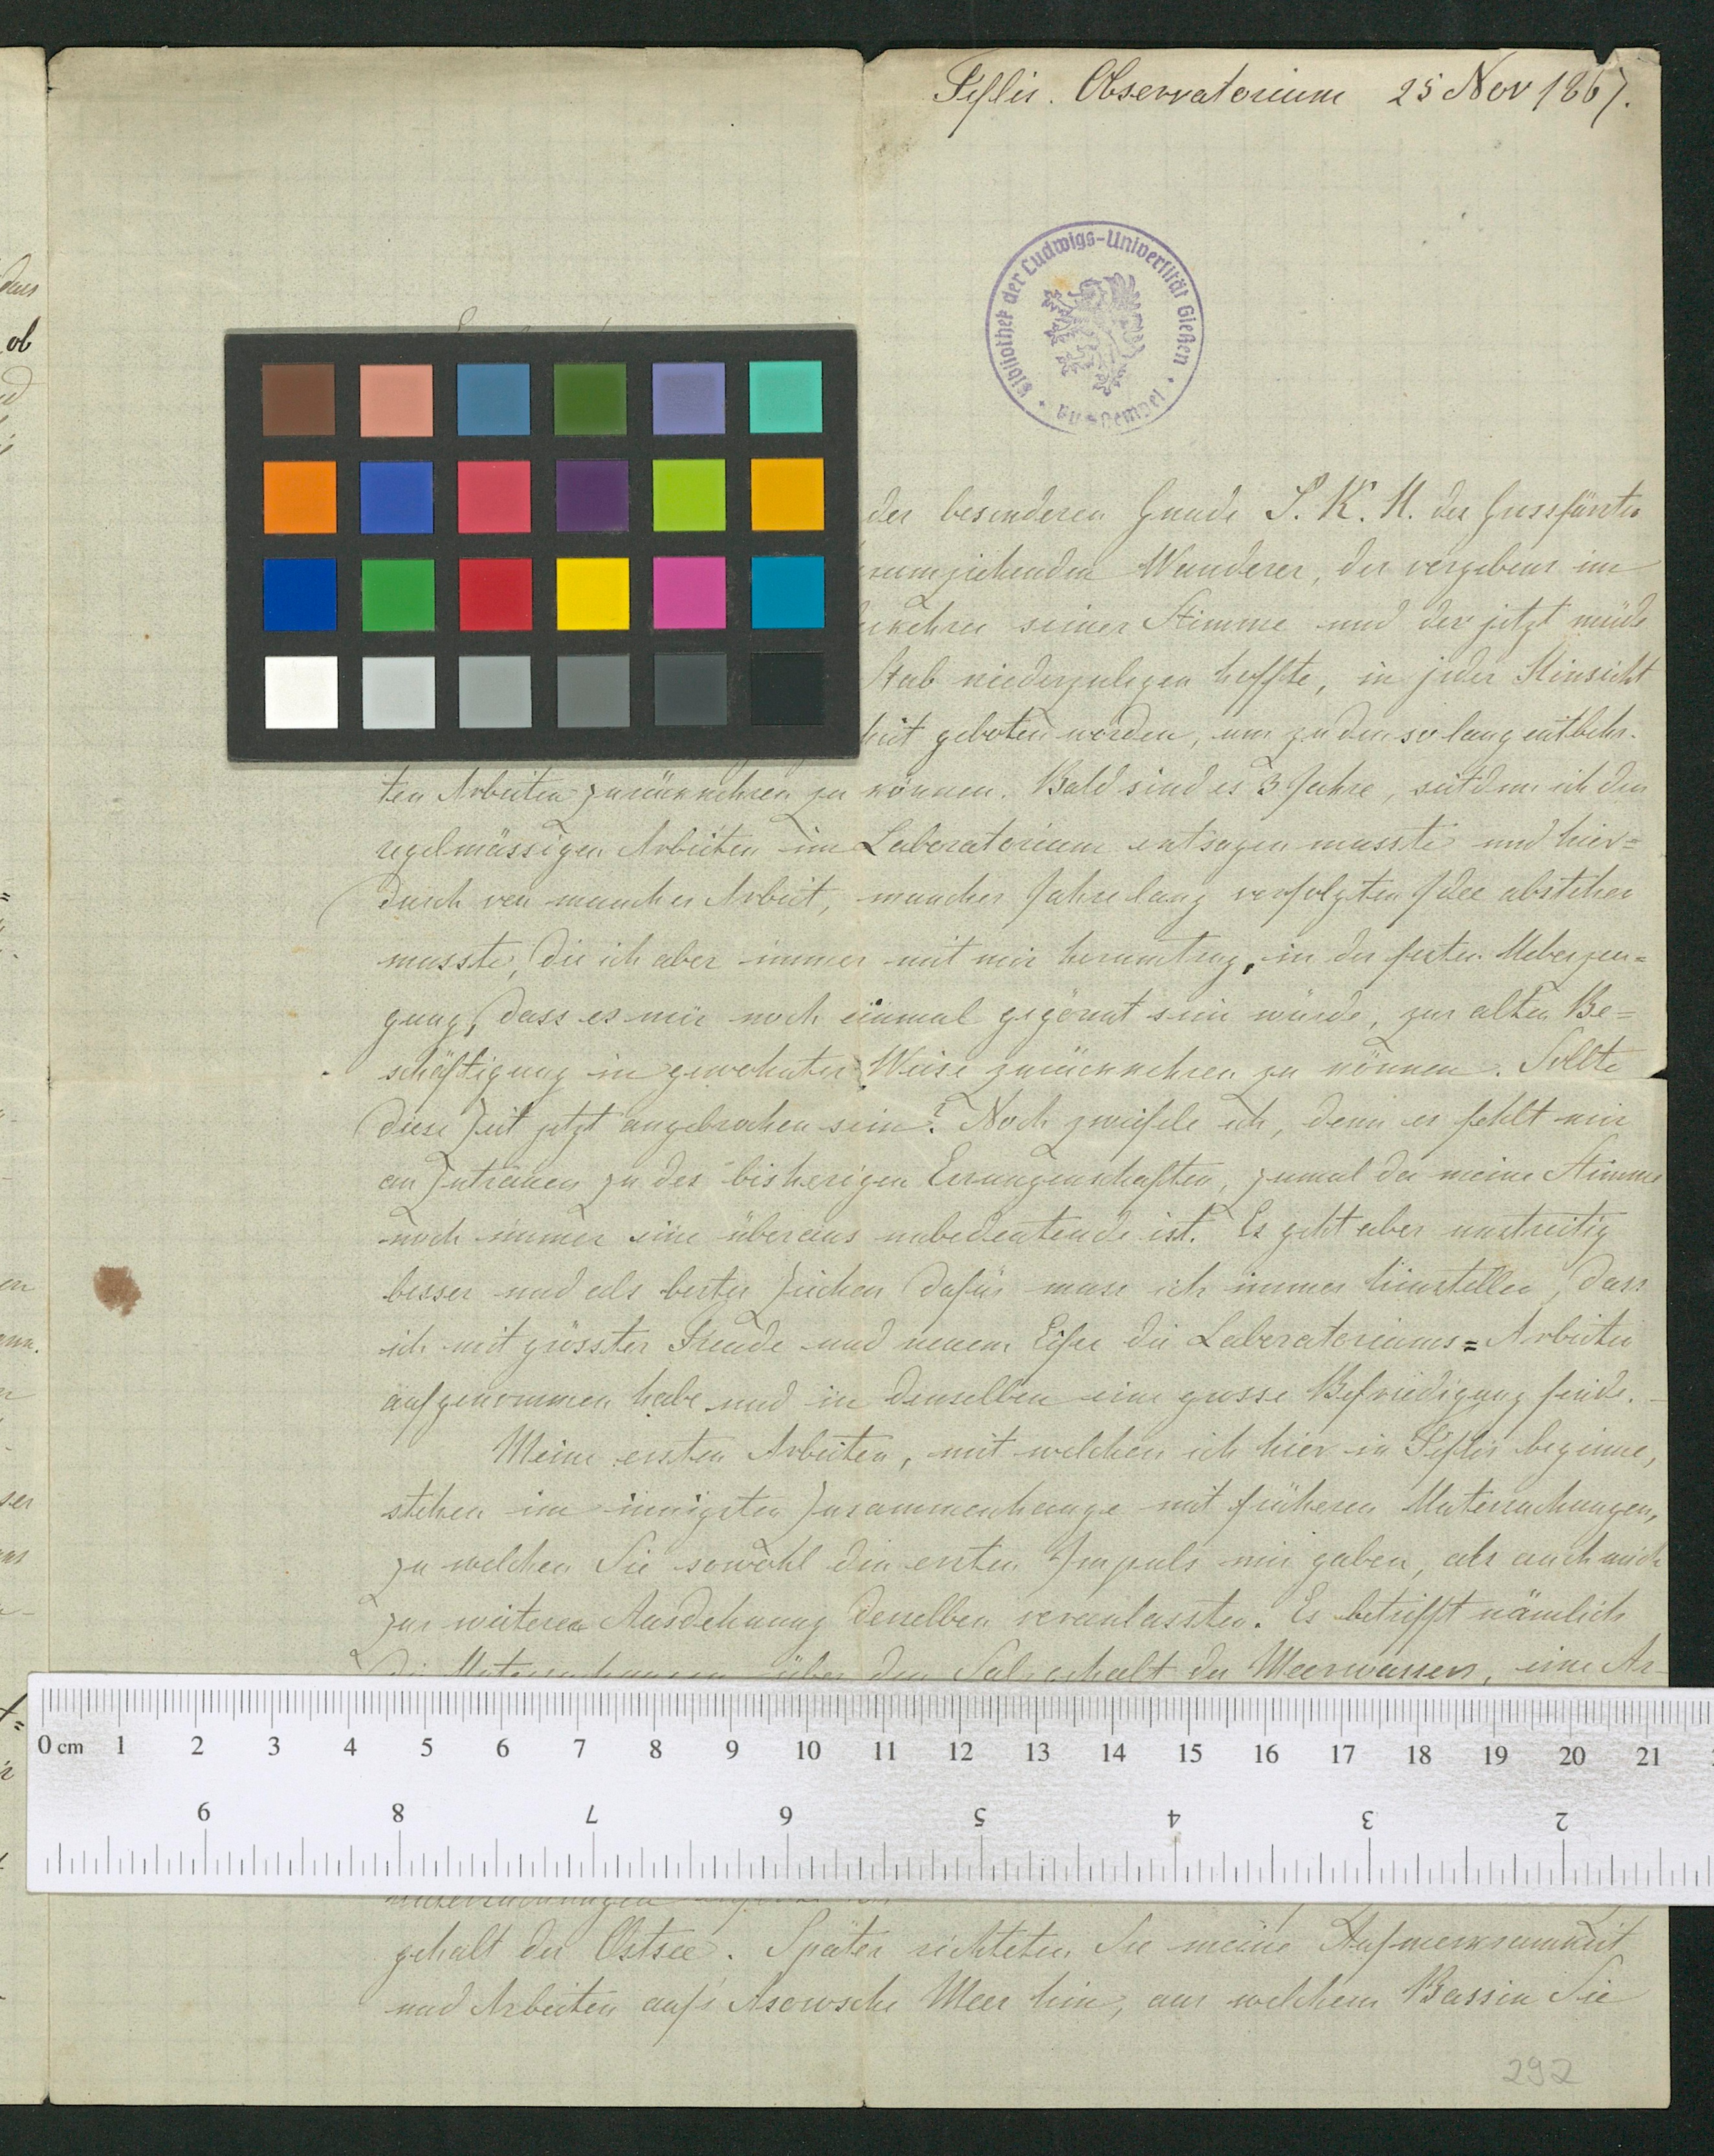 Tiflis. Observatorium 25 Nov 1867.
Bibliothek der Ludwigs-Universität Gießen
der besonderen Gnade S. K. H. des Grossfürsten
herumziehenden Wanderer, der vergebens im
seiner Stimme und der jetzt müde
Stab niederzulegen hoffte, in jeder Hinsicht
geboten worden, um zu den so lang entbehr-
ten Arbeiten zurückkehren zu können. Bald sind es 3 Jahre, seitdem ich den
regelmässigen Arbeiten im Laboratorium entsagen musste und hier=
durch von mancher Arbeit, mancher Jahre lang verfolgten Idee abstehen
musste, die ich aber immer mit mir herumtrug, in der festen Ueberzeu=
gung, dass es mir noch einmal gegönnt sein würde, zur alten Be=
schäftigung in gewohnter Weise zurückkehren zu können. Sollte
diese Zeit jetzt angebrochen sein? Noch zweifele ich, denn es fehlt mir
an Zutrauen zu der bisherigen Errungenschaften, zumal da meine Stimme
noch immer eine überaus unbedeutende ist. Es geht aber unstreitig
besser und als bestes Zeichen dafür muss ich immer hinstellen, dass
ich mit grösster Freude und neuem Eifer die Laboratoriums=Arbeiten
aufgenommen habe und in denselben eine grosse Befriedigung finde. –
Meine ersten Arbeiten, mit welchen ich hier in Tiflis beginne,
stehen im innigsten Zusammenhange mit früheren Untersuchungen,
zu welchen Sie sowohl den ersten Impuls mir gaben, als auch mich
zur weiteren Ausdehnung derselben veranlassten. Es betrifft nämlich
die Untersuchungen über den Salzgehalt des Meerwassers, eine Ar-
0 cm 1 2 3 4 5 6 7 8 9 10 11 12 13 14 15 16 17 18 19 20 21
9 8 7 6 5 4 3 2
gehalt der Ostsee. Später richteten Sie meine Aufmerksamkeit
und Arbeiten auf's Asowsche Meer hin, aus welchem Bassin Sie
292